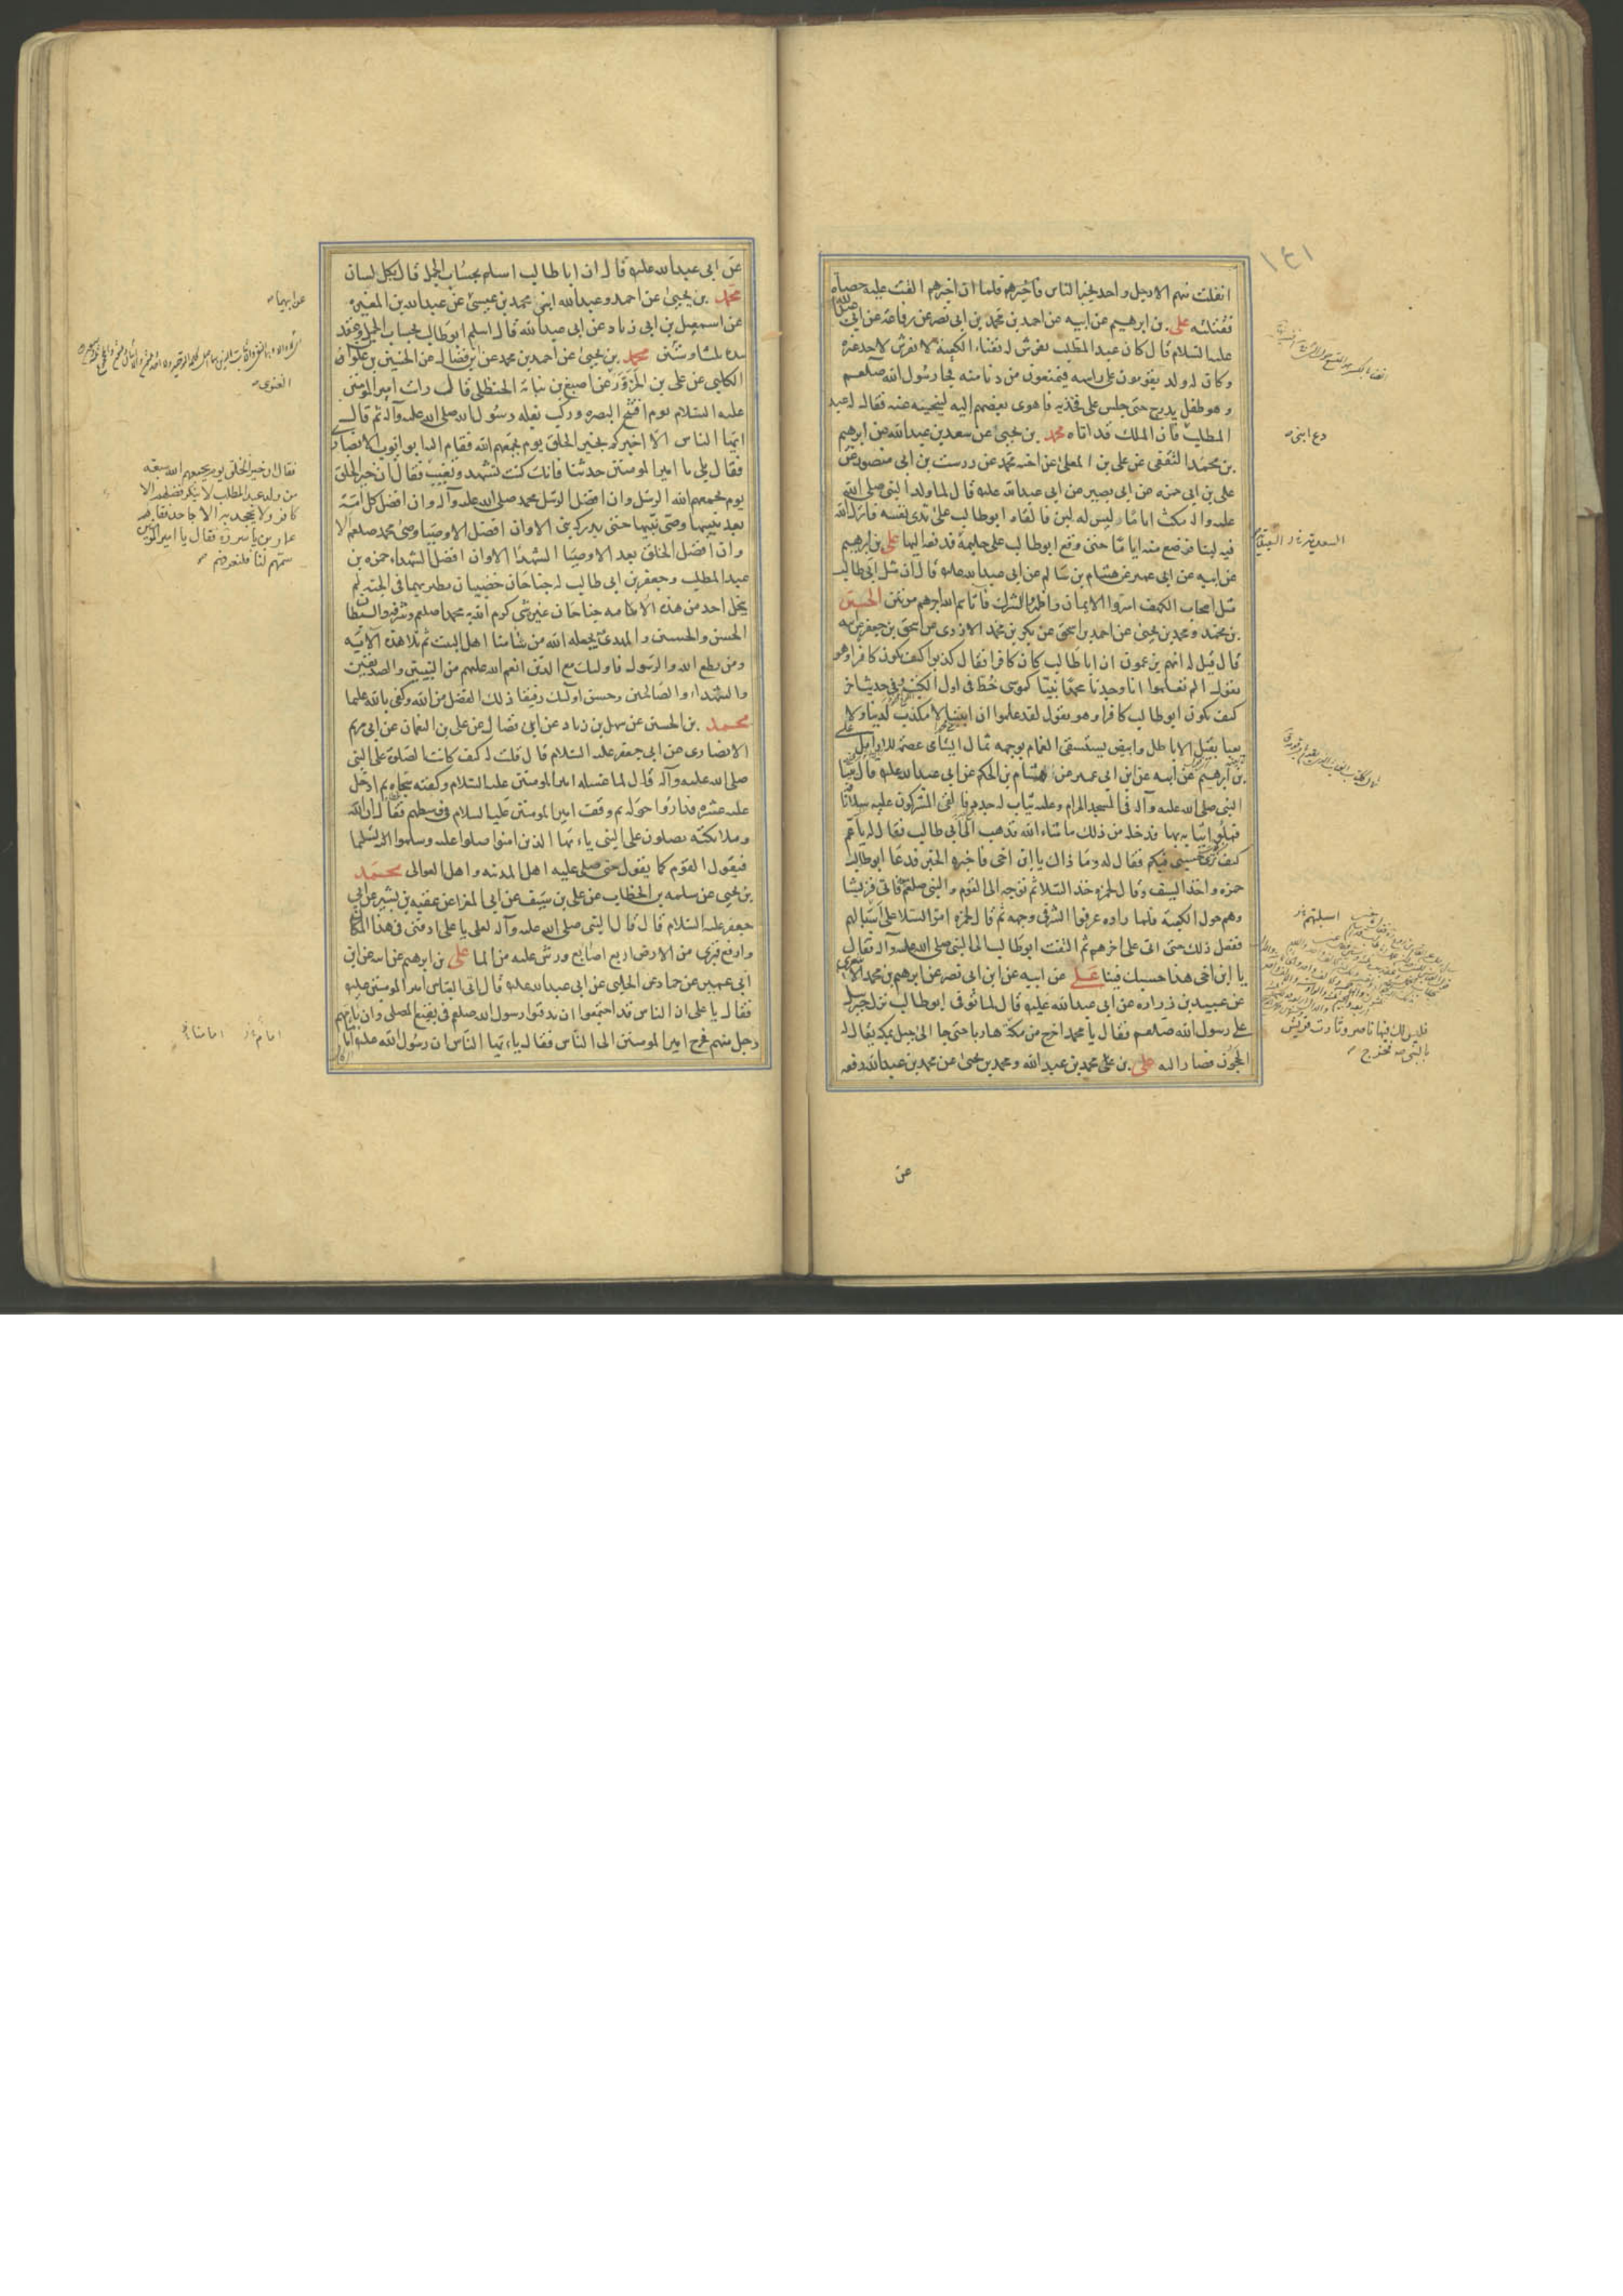 ١٤١
انفلت منهم الا رجل واحد يخبر الناس فاخبرهم فلما ان اخبرهم القت عليه حصاة
فقتلته علی بن ابرهيم عن ابيه عن احمد بن محمد بن ابی نصر عن رفاعة عن ابی عبدالله
عليه السلام قال كان عبد المطلب يفرش له بفناء الكعبة لا يفرش لاحد غيره
وكان له ولد يقومون علی راسه فيمنعون من دنا منه فجا رسول الله صلعم
وهو طفل يدرج حتی جلس علی فخذيه فاهوی بعضهم اليه لينحيه عنه فقال له عبد
المطلب فان الملك قد اتاه محمد بن يحيی عن سعد بن عبدالله عن ابرهيم
بن محمد الثقفی عن علی بن المعلی عن اخيه محمد عن درست بن ابی منصور عن
علی بن ابی حمزه عن ابی بصير عن ابی عبدالله عليه قال لما ولد النبی صلی الله
عليه واله مكث اياما ليس له لبن فالقاه ابو طالب علی ثدی نفسه فانزل الله
فيه لبنا فرضع منه اياما حتی وقع ابو طالب علی حليمة فدفعه اليها علی بن ابرهيم
عن ابيه عن ابی عمير عن هشام بن سالم عن ابی عبدالله عليه قال ان مثل ابی طالب
مثل اصحاب الكهف اسروا الايمان واظهروا الشرك فاتاهم الله اجرهم مرتين الحسين
بن محمد ومحمد بن يحيی عن احمد بن اسحق عن بكر بن محمد الازدی عن اسحق بن جعفر عن ابيه
قال قيل له انهم يزعمون ان ابا طالب كان كافرا فقال كذبوا كيف يكون كافرا وهو
يقول الم تعلموا انا وجدنا محمدا نبيا كموسی خط فی اول الكتب وفی حديث اخر
كيف يكون ابو طالب كافرا وهو يقول لقد علموا ان ابننا لا مكذب لدينا ولا
يعبا بقيل الاباطل وابيض يستسقی الغمام بوجهه ثمال اليتامی عصمة للارامل علی
بن ابرهيم عن ابيه عن ابن ابی عمير عن هشام بن الحكم عن ابی عبدالله عليه قال بينا
النبی صلی الله عليه وآله فی المسجد الحرام وعليه ثياب له جدد فالقی المشركون عليه سلا ناقة
فملوا ثيابه بها فدخله من ذلك ما شاء الله فذهب الی ابی طالب فقال له يا عم
كيف تری حسبی فيكم فقال له وما ذاك يا ابن اخی فاخبره الخبر فدعا ابو طالب
حمزه واخذ السيف وقال لحمزه خذ السلا ثم توجه الی القوم والنبی صلعم فاتی قريشا
وهم حول الكعبة فلما راوه عرفوا الشر فی وجهه ثم قال لحمزه امر السلا علی اسبالهم
ففعل ذلك حتی اتی علی اخرهم ثم التفت ابو طالب الی النبی صلی الله عليه وآله فقال
يا ابن اخی هذا حسبك فينا علی عن ابيه عن ابن ابی نصر عن ابرهيم بن محمد الاشعری
عن عبيد بن زراره عن ابی عبدالله عليه قال لما توفی ابو طالب نزل جبرئيل
علی رسول الله صلعم فقال يا محمد اخرج من مكة
هاربا حتی جا الی جبل بمكة يقال له
الحجون فصار اليه علی بن علی محمد بن عبد الله ومحمد بن يحيی عن محمد بن عبدالله رفعه
عن
دع ابنی
السعدية
اسبلتهم
فليس لك فيها ناصر وثارت قريش
بالنبی فخرج
عن ابی عبدالله عليه قال ان ابا طالب اسلم بحساب الجمل قال بكل لسان
محمد بن يحيی عن احمد وعبدالله ابنی محمد بن عيسی عن عبدالله بن المغيرة
عن اسمعيل بن ابی زياد عن ابی عبدالله قال اسلم ابو طالب بحساب الجمل وعقد
بيده ثلثا وستين محمد بن يحيی عن احمد بن محمد عن ابن فضال عن الحسين بن علوان
الكلبی عن علی بن الحزور عن اصبغ بن نباتة الحنظلی قال رايت امير المومنين
عليه السلام يوم افتتح البصره وركب بغلة رسول الله صلی الله عليه وآله ثم قال
ايها الناس الا اخبركم بخير الخلق يوم يجمعهم الله فقام اليه ابو ايوب الانصاری
فقال بلی يا امير المومنين حدثنا فانك كنت تشهد ونغيب فقال ان خير الخلق
يوم يجمعهم الله الرسل وان افضل الرسل محمد صلی الله عليه وآله وان افضل كل امة
بعد نبيها وصی نبيها حتی يدركه نبی الا وان افضل الاوصيا وصی محمد صلعم الا
وان افضل الخلق بعد الاوصيا الشهدا الا وان افضل الشهداء حمزه بن
عبد المطلب وجعفر بن ابی طالب له جناحان خضيبان يطير بهما فی الجنة لم
ينحل احد من هذه الامة جناحان غيره شی كرم الله به محمدا صلعم وشرفه والسبطان
الحسن والحسين والمهدی يجعله الله من شا منا اهل البيت ثم تلا هذه الآية
ومن يطع الله والرسول فاولئك مع الذين انعم الله عليهم من النبيين والصديقين
والشهداء والصالحين وحسن اولئك رفيقا ذلك الفضل من الله وكفی بالله عليما
محمد بن الحسين عن سهل بن زياد عن ابی فضال عن علی بن النعمان عن ابی مريم
الانصاری عن ابی جعفر عليه السلام قال قلت له كيف كانت الصلوة علی النبی
صلی الله عليه وآله قال لما غسله امير المومنين عليه السلام وكفنه سجاه ثم ادخل
عليه عشره فداروا حوله ثم وقف امير المومنين عليه السلام فی وسطهم فقال ان الله
وملائكته يصلون علی النبی ياءيها الذين امنوا صلوا عليه وسلموا تسليما
فيقول القوم كما يقول حتی صلی عليه اهل المدينه واهل العوالی محمد
بن يحيی عن سلمه بن الخطاب عن علی بن سيف عن ابی المغرا عن عقبه بن بشير عن ابی
جعفر عليه السلام قال قال النبی صلی الله عليه وآله لعلی يا علی ادفنی فی هذا المكان
وارفع قبری من الارض اربع اصابع ورش عليه من الما علی بن ابرهيم عن ابيه عن ابن
ابی عمير عن حماد عن الحلبی عن ابی عبدالله عليه قال اتی العباس امير المومنين عليه
فقال يا علی ان الناس قد اجتمعوا ان يدفنوا رسول الله صلعم فی بقيع المصلی وان يؤمهم
رجل منهم فخرج امير المومنين الی الناس فقال ياءيها الناس ان رسول الله عليه
عن ابيهما
الغنوی
فقال ان خير الخلق يوم يجمعهم الله سبعه
من ولد عبد المطلب لا ينكر فضلهم الا
كافر ولا يجحد به الا جاحد فقام
عمار بن ياسر ره فقال يا امير المومنين
سمهم لنا فلنعرفهم